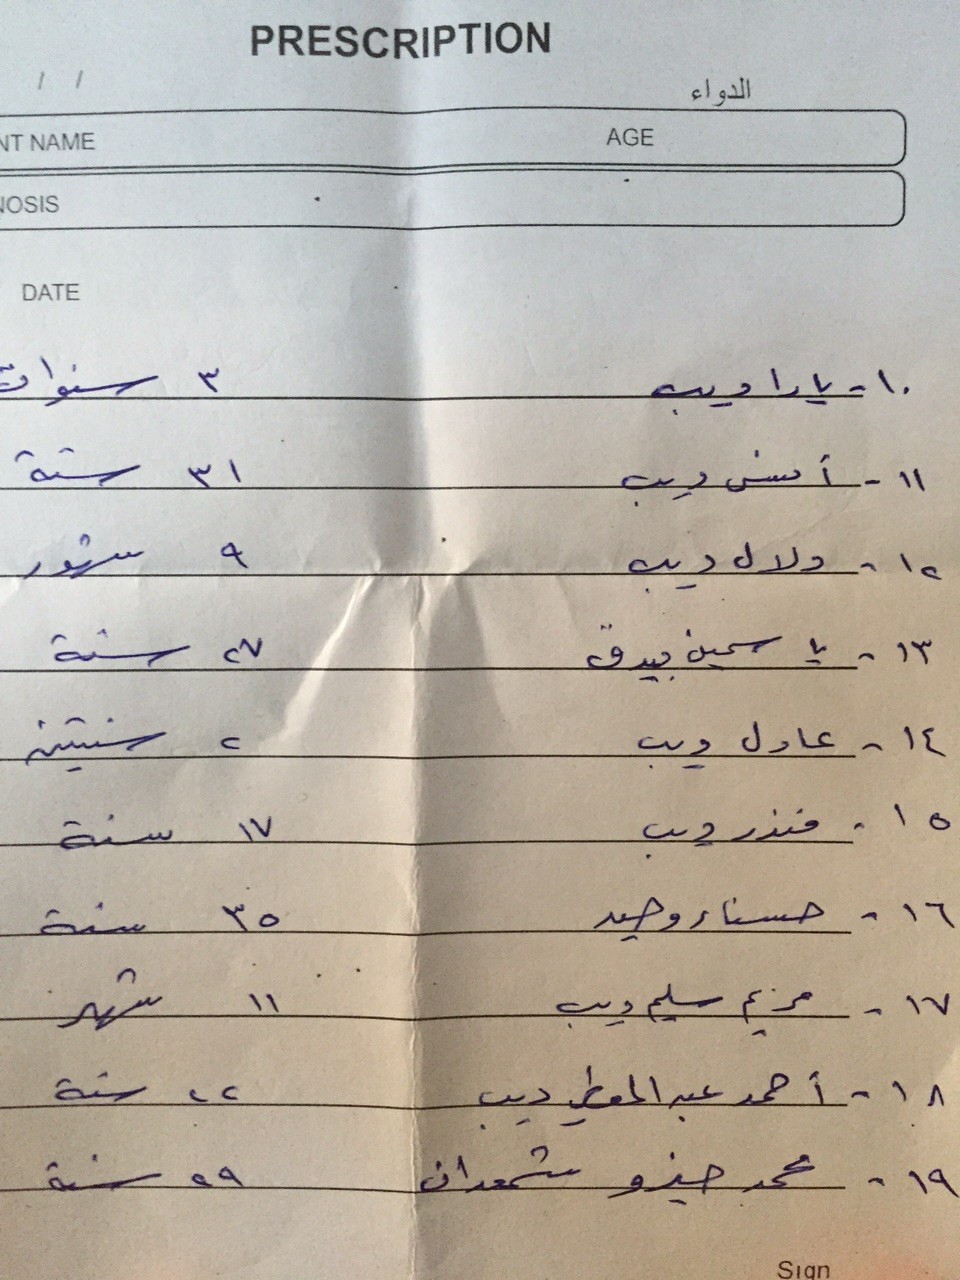 PRESCRIPTION
/ /
الدواء
NT NAME AGE
NOSIS
DATE
١٠- يارا ديب ٣ سنوات
١١- أ ديب ٣١ سنة
١٢- دلال ديب ٩ شهور
١٣- ياسمين بيدق ٢٧ سنة
١٤- عادل ديب ٢ سنتين
١٥- منذر ديب ١٧ سنة
١٦- حسناء وحيد ٣٥ سنة
١٧- مريم سليم ديب ١١ شهر
١٨- أحمد عبد المعطي ديب ٢٢ سنة
١٩- محمد شمعدان ٢٩ سنة
Sign